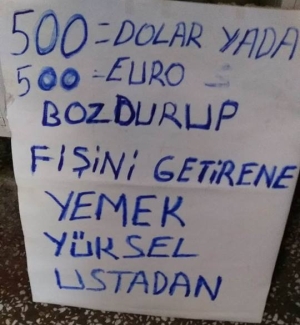 500=DOLAR YADA
500=EURO
BOZDURUP
FİŞİNİ GETİRENE
YEMEK
YÜKSEL
USTADAN